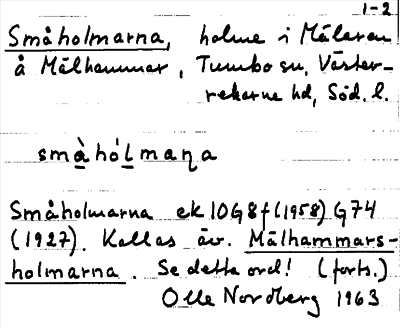 1-2
Småholmarna, holme i Mälaren
å Mälhammar, Tumbo sn, Väster-
rekarne hd, Söd. l.
smàhólmaṇa
Småholmarna ek 10G8f (1958) G74
(1927). Kallas äv. Mälhammars-
holmarna. Se detta ord! (forts.)
Olle Nordberg 1963